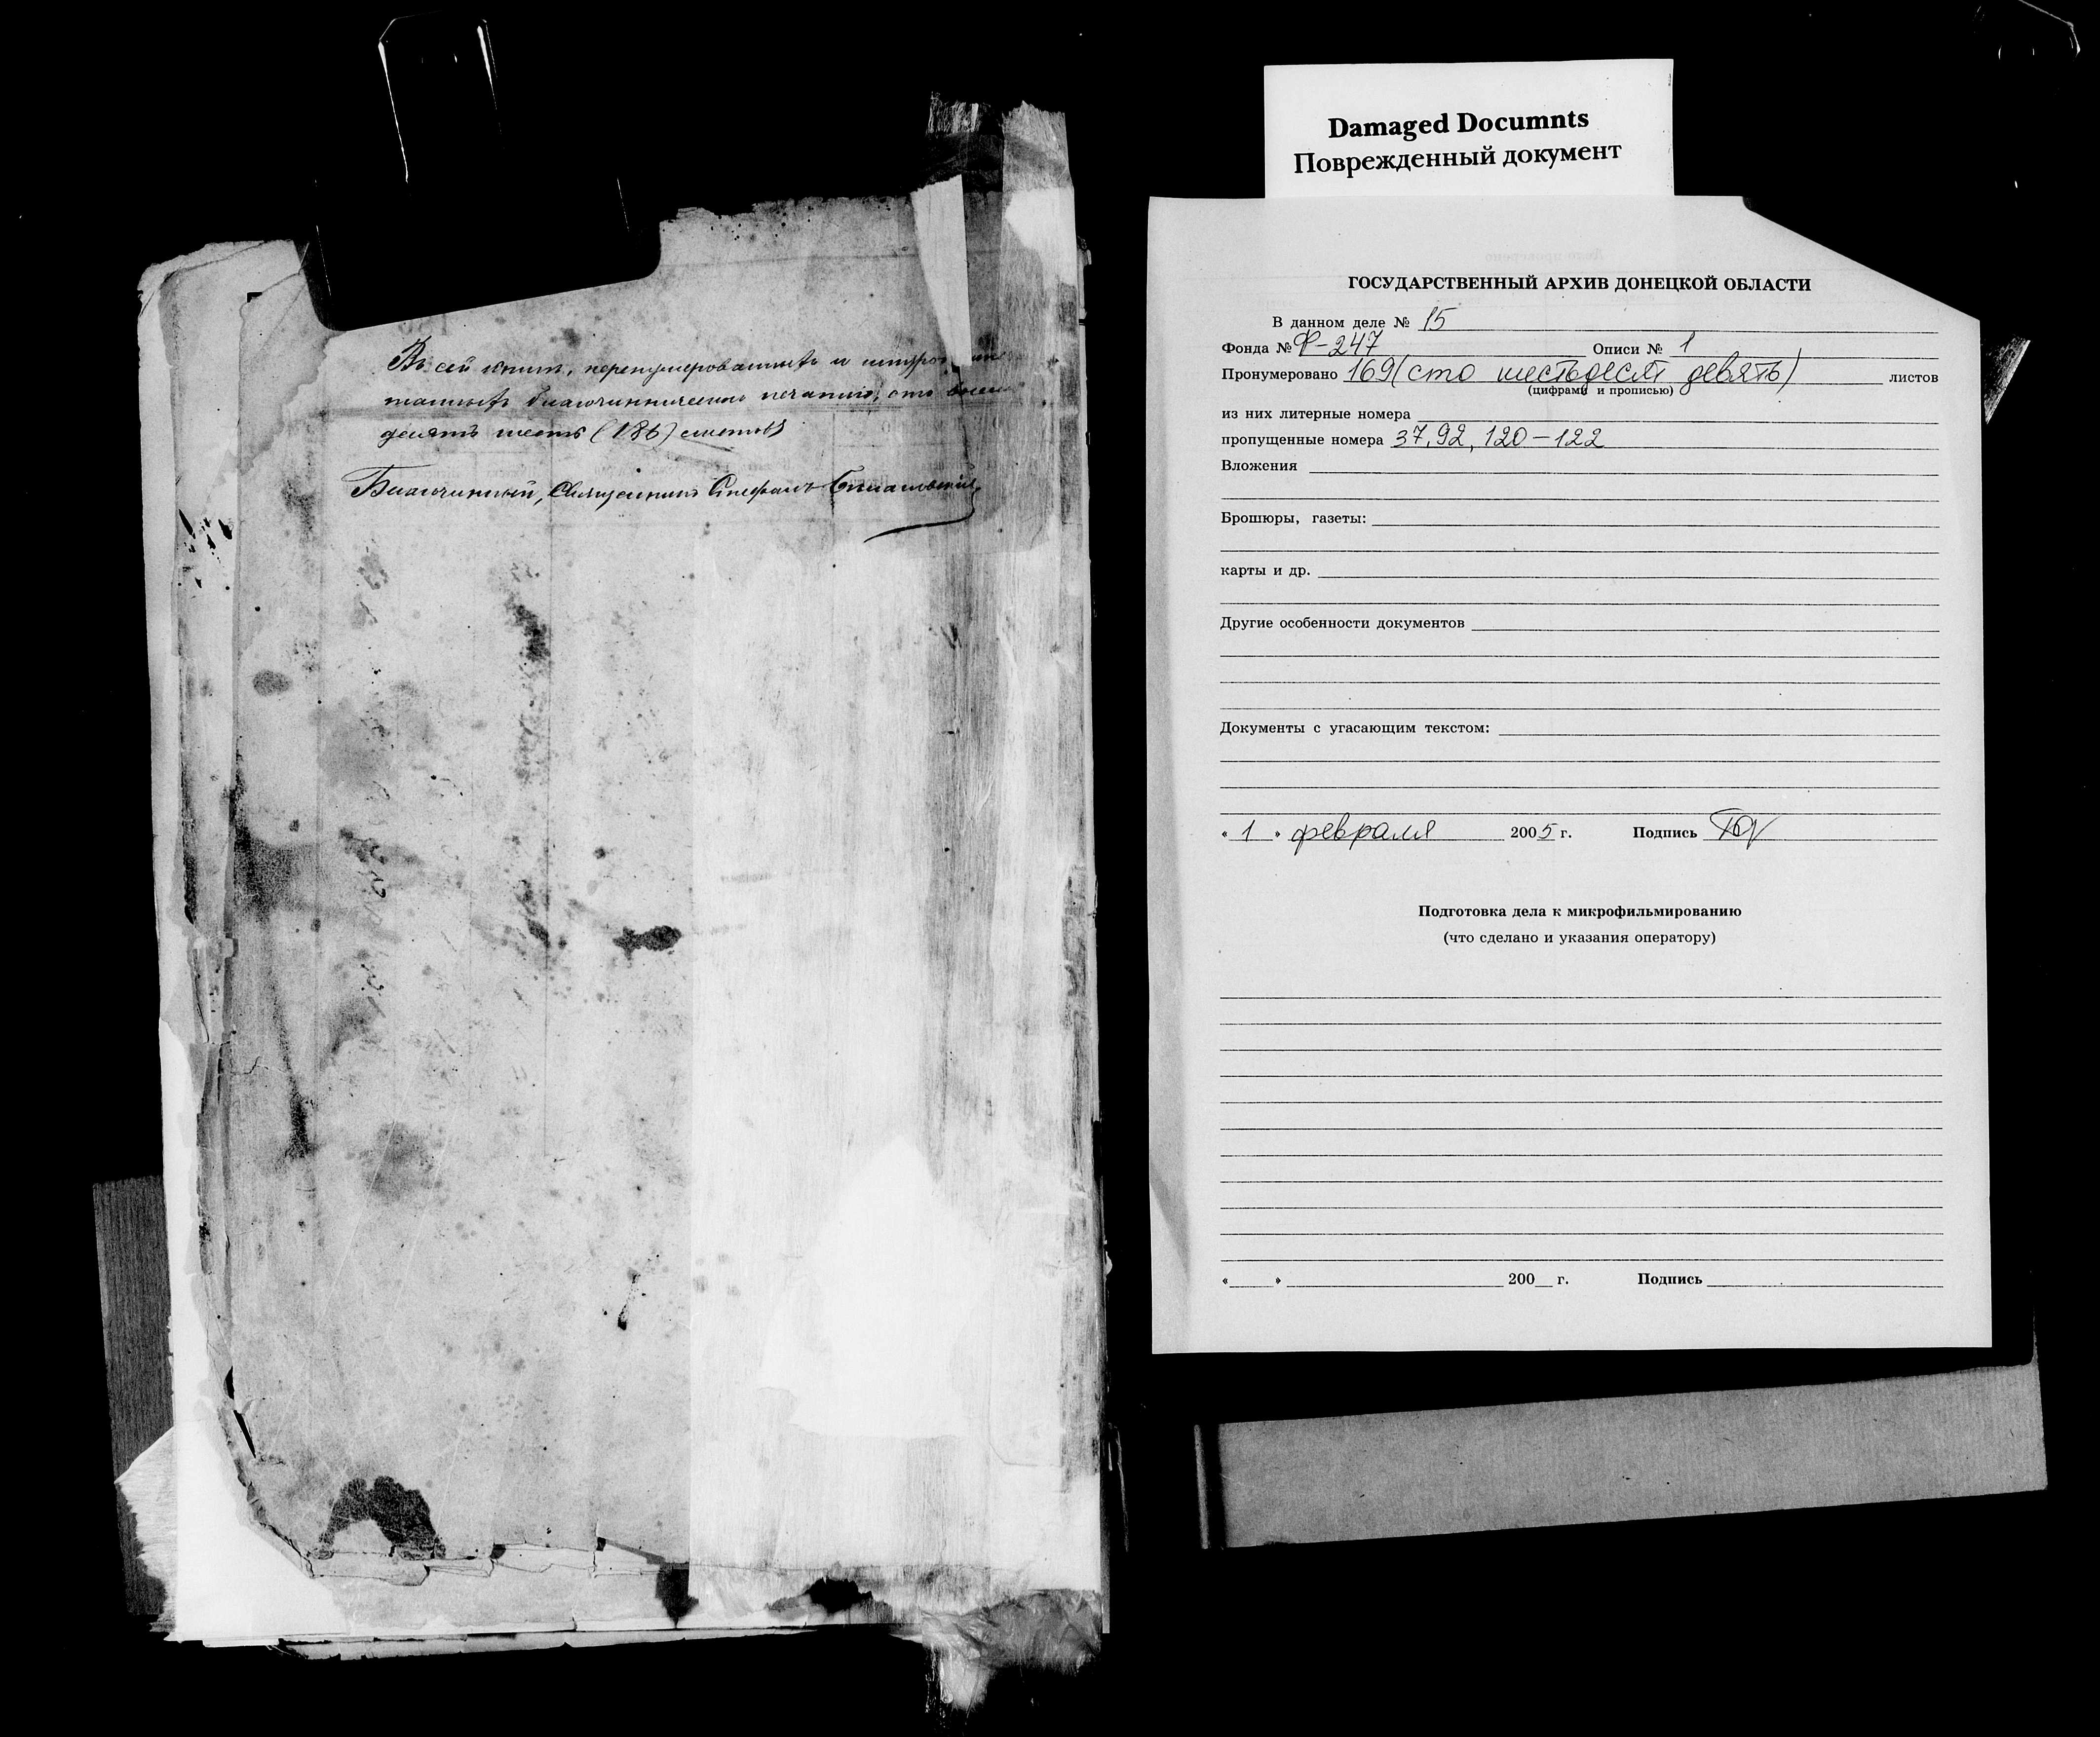 Въ сей книгѣ, перенумерованныхъ и
благочинническою печатію, сто
десятъ шесть (186) листовъ
Благочинный, Священникъ Стефанъ
Damaged Documnts
Поврежденный документ
ГОСУДАРСТВЕННЫЙ АРХИВ ДОНЕЦКОЙ ОБЛАСТИ
В данном деле № 15
Фонда № Ф-247 Описи № 1
Пронумеровано 169 (сто шестьдесят девять) листов
(цифрами и прописью)
из них литерные номера
пропущенные номера 37, 92, 120-122
Вложения
Брошюры, газеты:
карты и др.
Другие особенности документов
Документы с угасающим текстом:
« 1 » февраля 2005 г. Подпись
Подготовка дела к микрофильмированию
(что сделано и указания оператору)
« » 200 г. Подпись